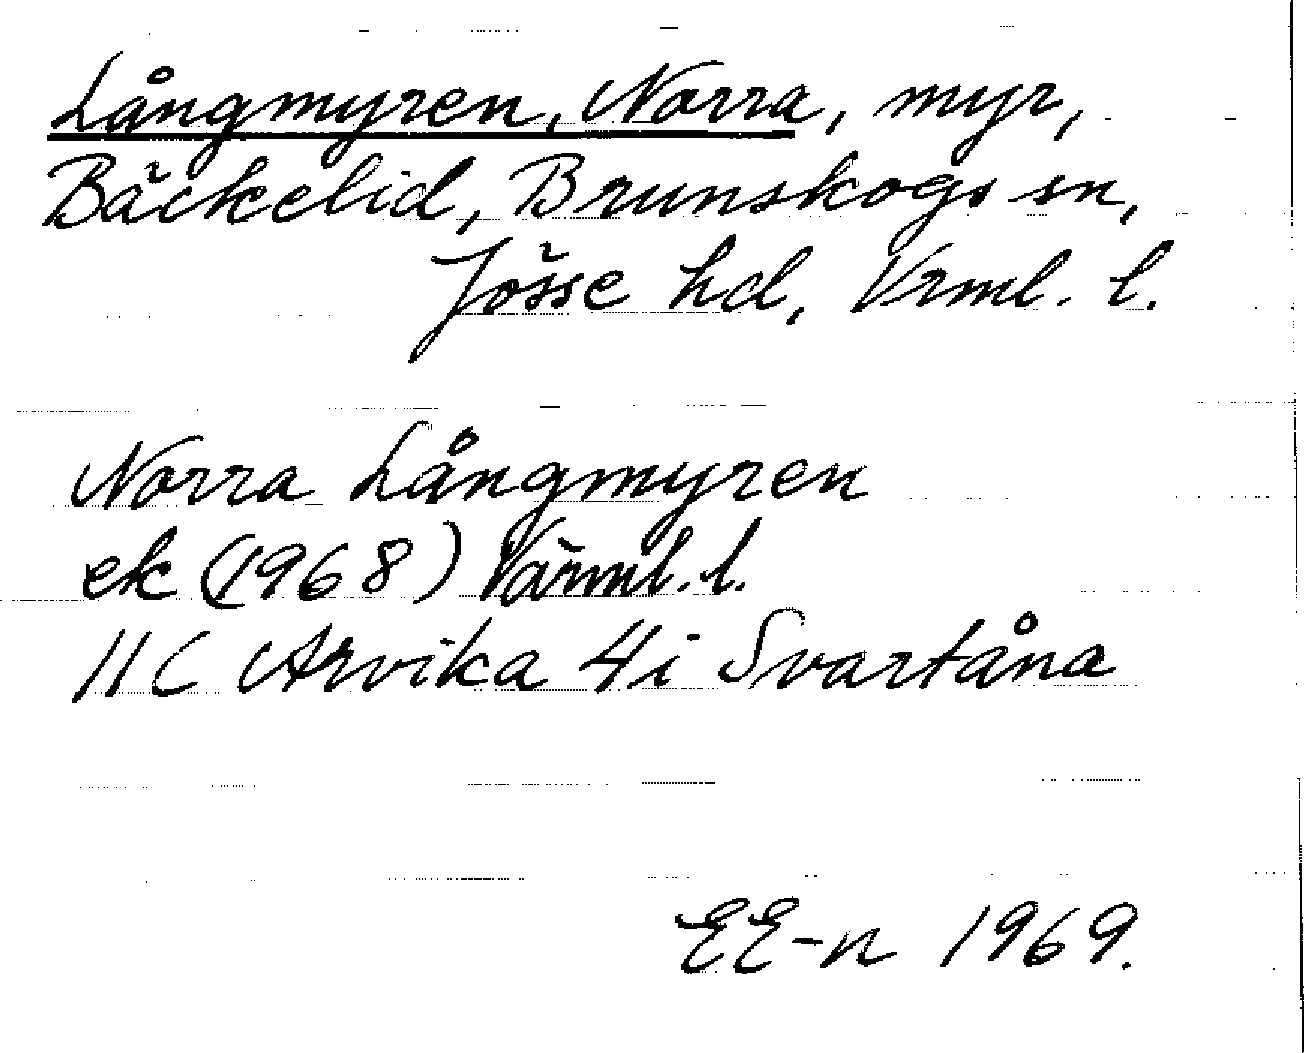 Långmyren, Norra, myr,
Bäckelid, Brunskogs sn,
Jösse hd, Vrml. l.
Norra Långmyren
ek (1968) Värml. l.
11C Arvika 4i Svartåna
EE-n 1969.